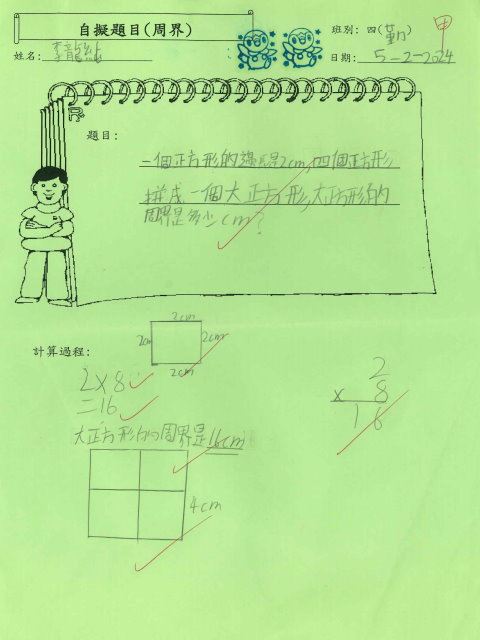 自擬題目(周界)
甲
班別: 四(勤)
姓名: 李龍
日期: 5-2-2024
題目:
一個正方形的邊長是2cm,四個正方形
拼成一個大正方形,大正方形的
周界是多少cm?
計算過程:
2cm
2cm
2cm
2cm
2×8
=16
2
× 8
16
大正方形的周界是16cm
4cm